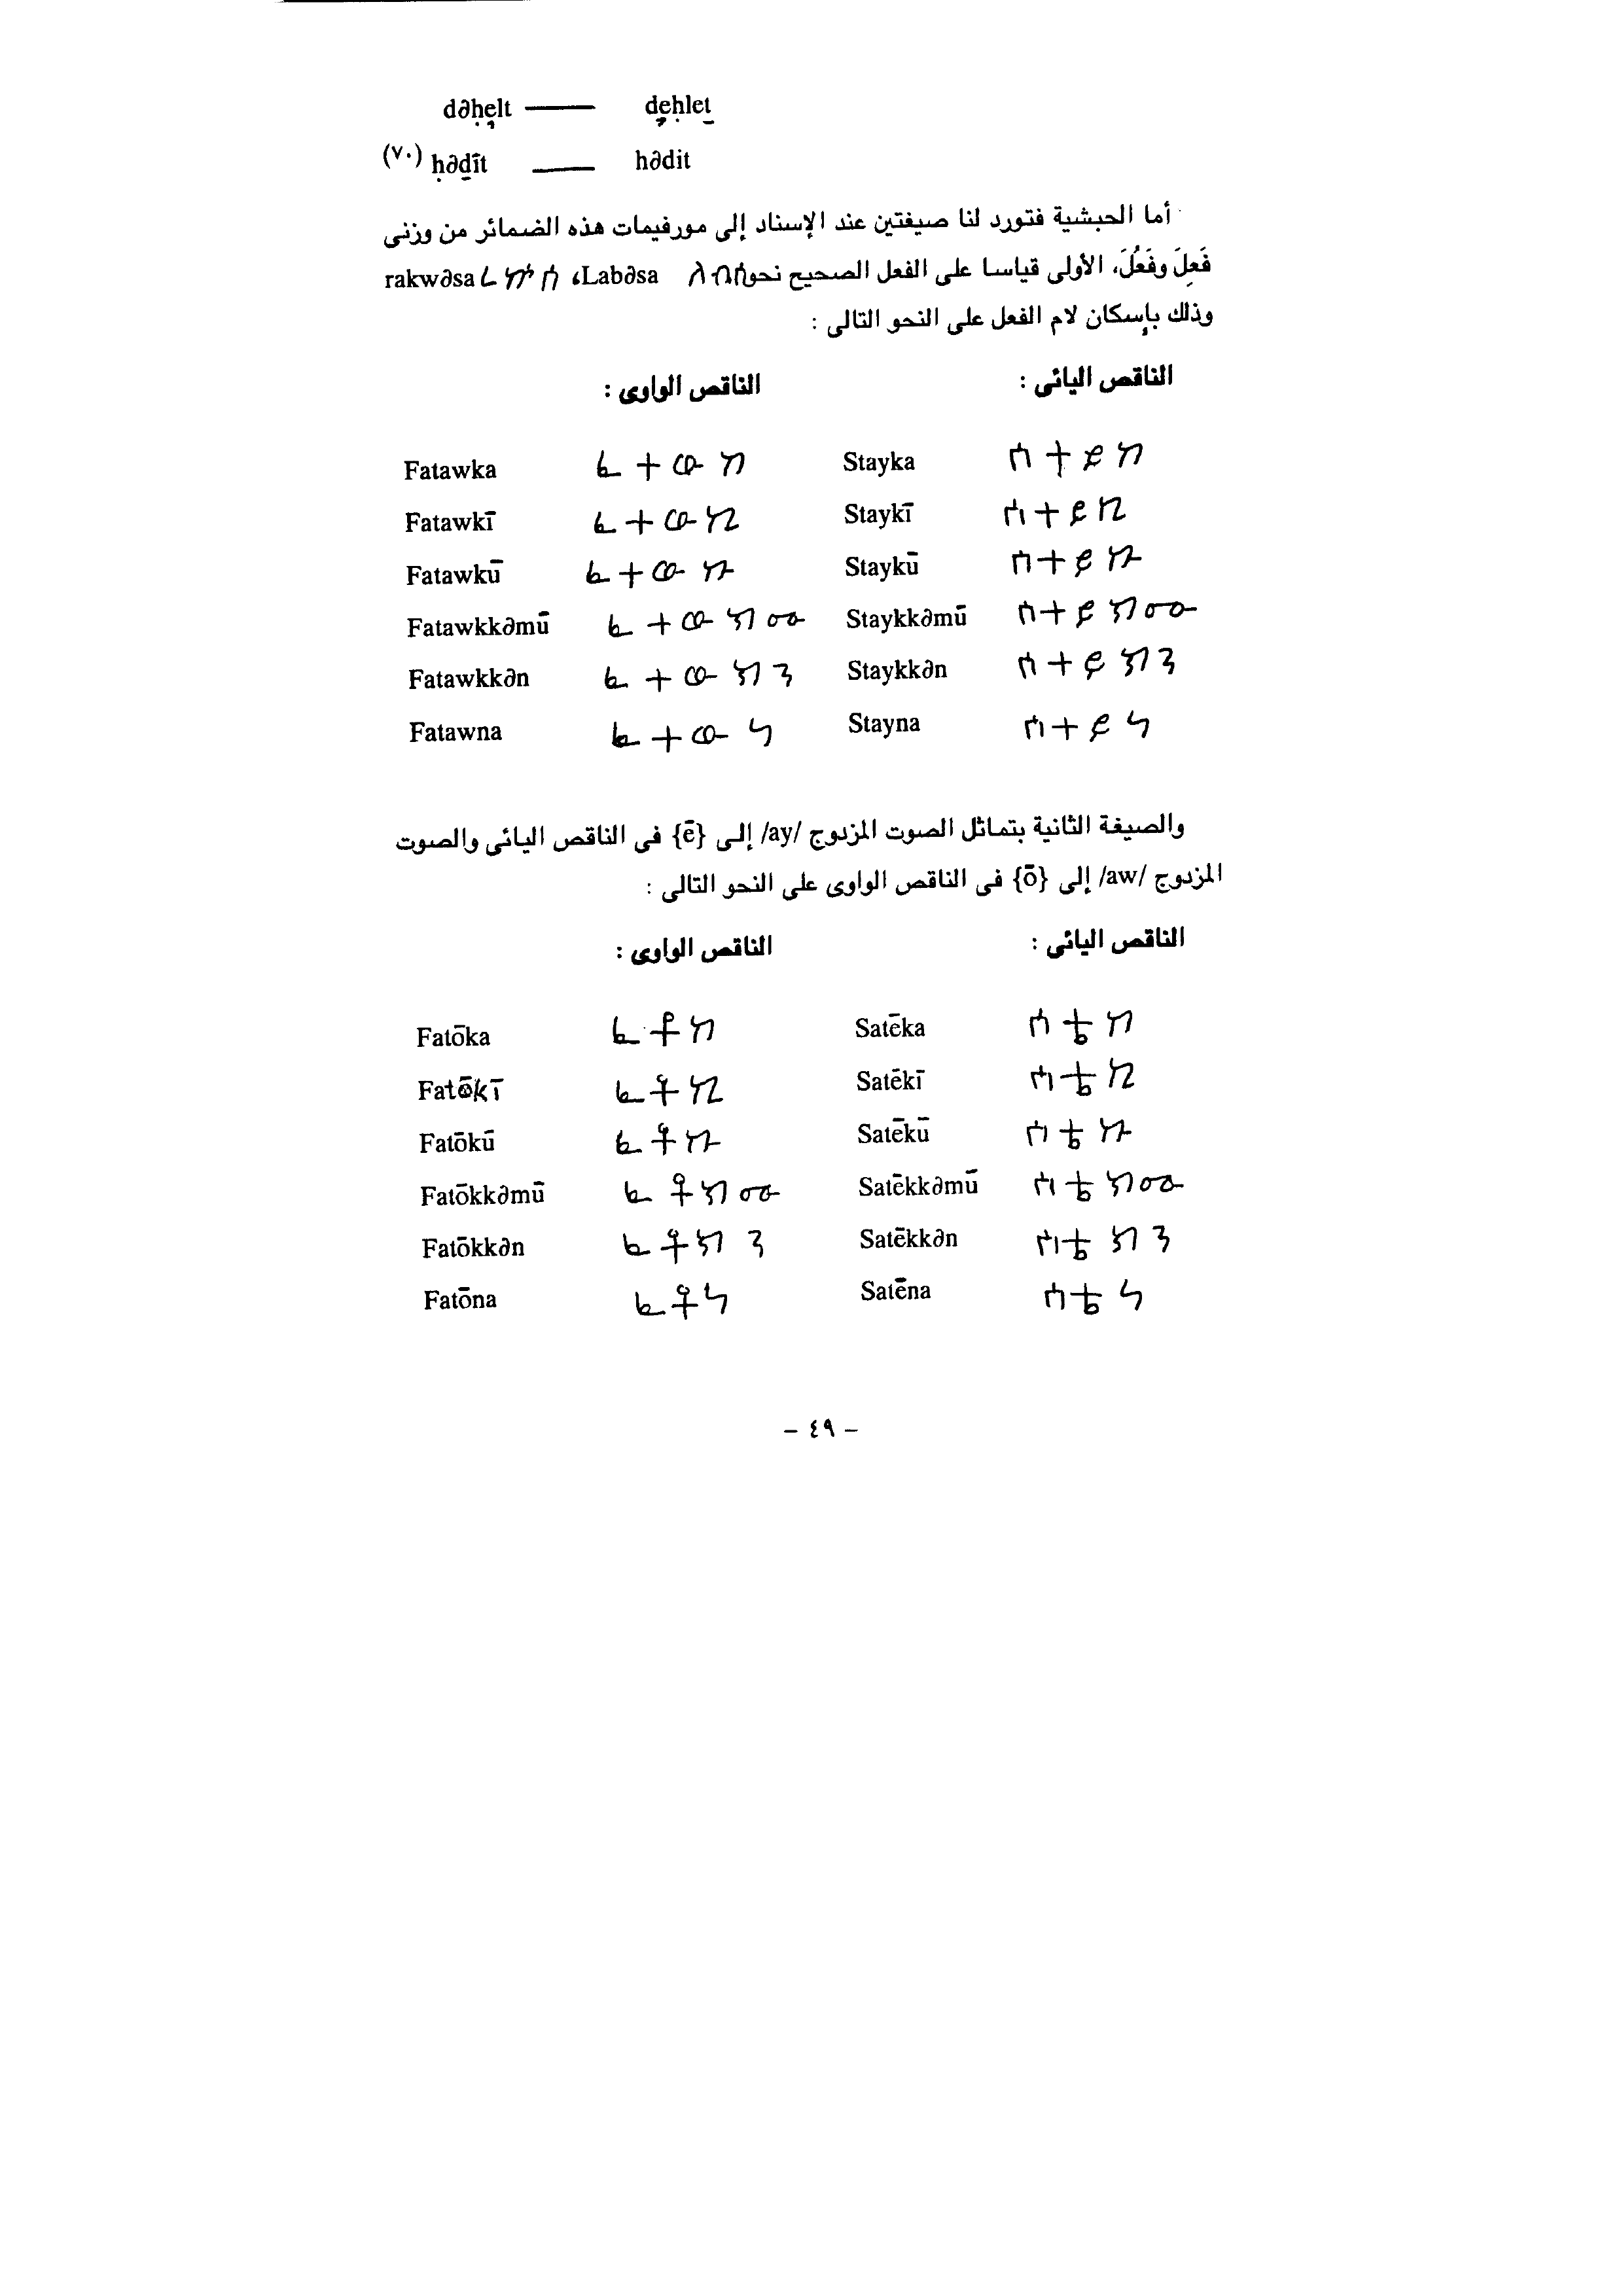 dəḥẹlt —— dẹḥleṯ
ḥəḏīt —— hədit (٧٠)
أما الحبشية فتورد لنا صيغتين عند الإسناد إلى مورفيمات هذه الضمائر من وزنى
فَعِلَ وفَعُلَ، الأولى قياسا على الفعل الصحيح نحو ለብሰ Labəsa، ረኵሰ rakwəsa
وذلك بإسكان لام الفعل على النحو التالى :
الناقص اليائى : الناقص الواوى :
ሰተይከ Stayka ፈተውከ Fatawka
ሰተይኪ Staykī ፈተውኪ Fatawkī
ሰተይኩ Staykū ፈተውኩ Fatawkū
ሰተይክሙ Staykkəmū ፈተውክሙ Fatawkkəmū
ሰተይክን Staykkən ፈተውክን Fatawkkən
ሰተይነ Stayna ፈተውነ Fatawna
والصيغة الثانية بتماثل الصوت المزدوج /ay/ إلى {ē} فى الناقص اليائى والصوت
المزدوج /aw/ إلى {ō} فى الناقص الواوى على النحو التالى :
الناقص اليائى : الناقص الواوى :
ሰቴከ Satēka ፈቶከ Fatōka
ሰቴኪ Satēkī ፈቶኪ Fatōkī
ሰቴኩ Satēkū ፈቶኩ Fatōkū
ሰቴክሙ Satēkkəmū ፈቶክሙ Fatōkkəmū
ሰቴክን Satēkkən ፈቶክን Fatōkkən
ሰቴነ Satēna ፈቶነ Fatōna
– ٤٩ –